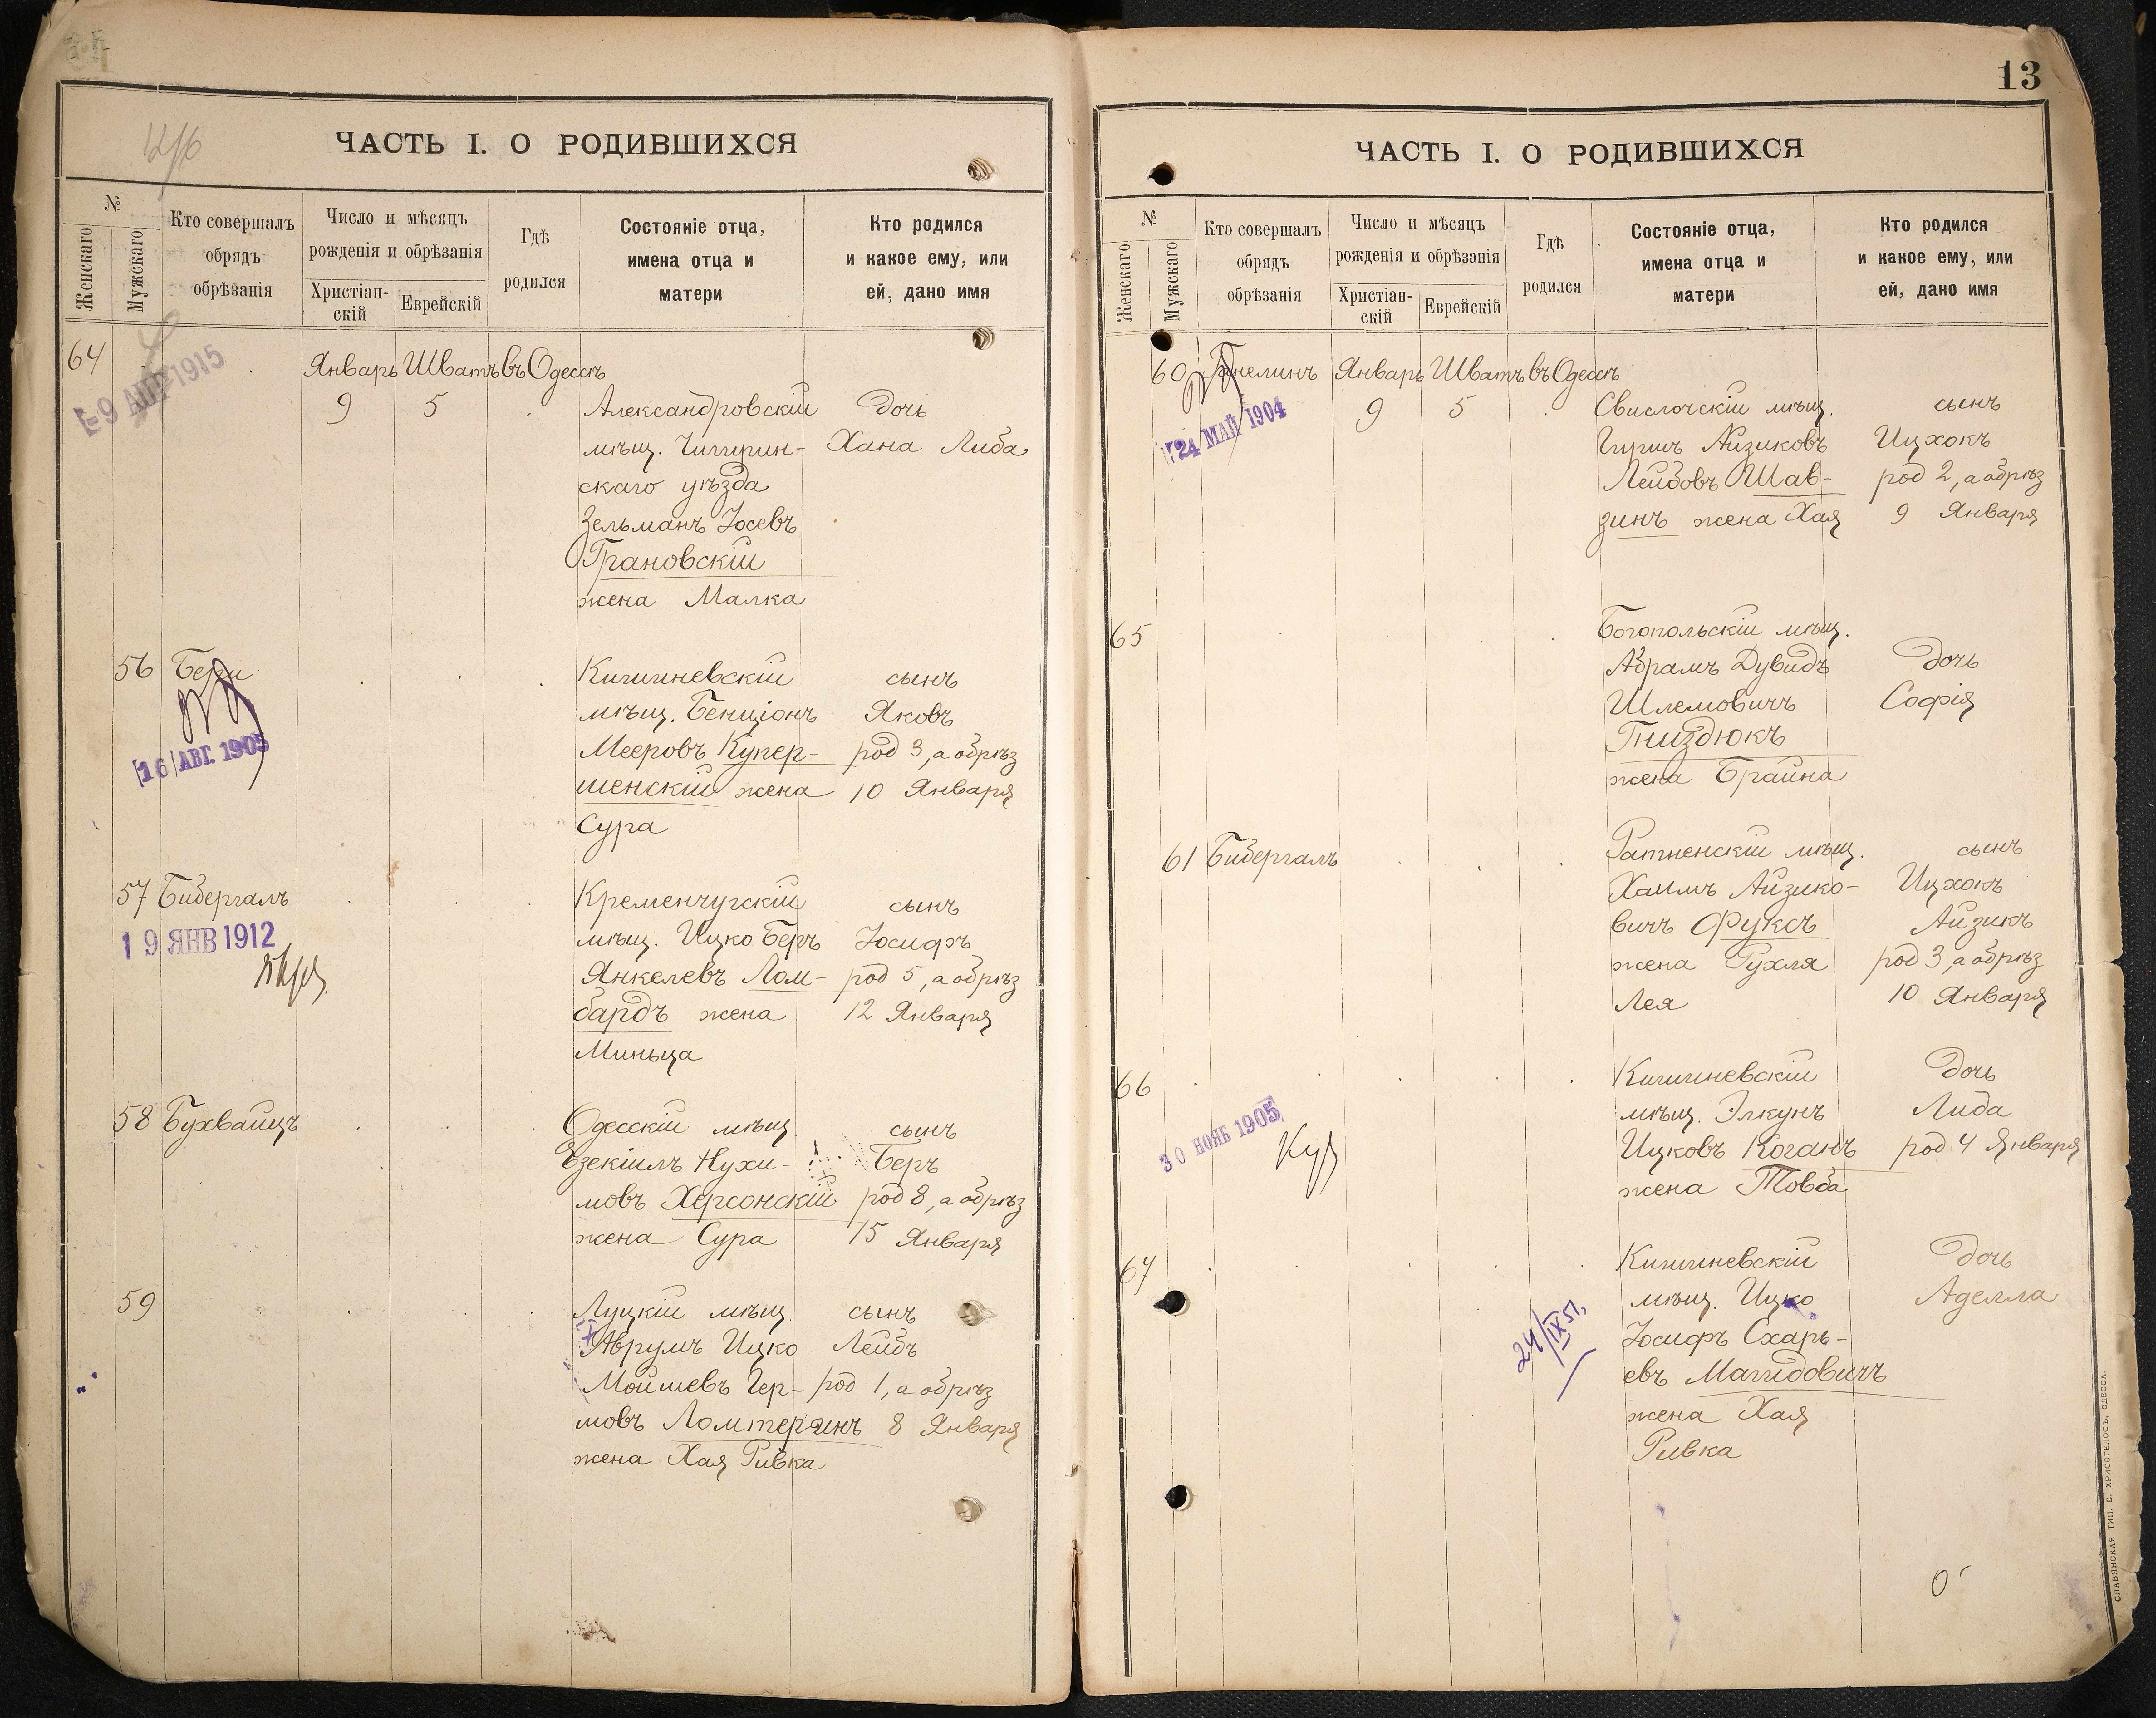 ЧАСТЬ I. О РОДИВШИХСЯ
№
Женскаго
Мужскаго
Кто совершалъ
обрядъ
обрѣзанія
Число и мѣсяцъ
рожденія и обрѣзанія
Христіан-
скій
Еврейскій
Гдѣ
родился
Состояніе отца,
имена отца и
матери
Кто родился
и какое ему, или
ей, дано имя
64
-9 АПР 1915
Январь Шватъ въ Одессѣ
9 5
Александровскій дочь
мѣщ. Чигирин- Хана Либа
скаго уѣзда
Зельманъ Іосевъ
Грановскій
жена Малка
56
16 АВГ. 1905
Кишиневскій сынъ
мѣщ. Бенціонъ Яковъ
Мееровъ Купер- род 3, а обрѣз
шенскій жена 10 Января
Сура
57 Бибергалъ
19 ЯНВ 1912
Кременчугскій сынъ
мѣщ. Ицко Беръ Іосифъ
Янкелевъ Лом- род 5, а обрѣз
бардъ жена 12 Января
Миньца
58 Бухвайцъ
Одесскій мѣщ. сынъ
Езекіилъ Нухи- Беръ
мовъ Херсонскій род 8, а обрѣз
жена Сура 15 Января
59
Луцкій мѣщ. сынъ
Аврумъ Ицко Лейбъ
Мойшевъ Гер- род 1, а обрѣз
шовъ 8 Января
жена Хая Ривка
13
ЧАСТЬ I. О РОДИВШИХСЯ
№
Женскаго
Мужскаго
Кто совершалъ
обрядъ
обрѣзанія
Число и мѣсяцъ
рожденія и обрѣзанія
Христіан-
скій
Еврейскій
Гдѣ
родился
Состояніе отца,
имена отца и
матери
Кто родился
и какое ему, или
ей, дано имя
60
24 МАЙ 1904
Январь Шватъ въ Одессѣ
9 5
Свислочскій мѣщ. сынъ
Гиршъ Айзиковъ Ицхокъ
Лейбовъ Шав- род 2, а обрѣз
зинъ жена Хая 9 Января
65
Богопольскій мѣщ.
Абрамъ Дувидъ дочь
Шлемовичъ Софія
Гниздюкъ
жена Брайна
61 Бибергалъ
Ратненскій мѣщ. сынъ
Хаимъ Айзико- Ицхокъ
вичъ Фуксъ Айзикъ
жена Рухля род 3, а обрѣз
Лея 10 Января
66
30 НОЯБ 1905
Кишиневскій дочь
мѣщ. Элкунъ Либа
Ицковъ Коганъ род 4 Января
жена Товба
67
24/IX 51.
Кишиневскій дочь
мѣщ. Ицко Аделла
Іосифъ Схарь-
евъ Магидовичъ
жена Хая
Ривка
СЛАВЯНСКАЯ ТИП. Е. ХРИСОГЕЛОСЪ, ОДЕССА.